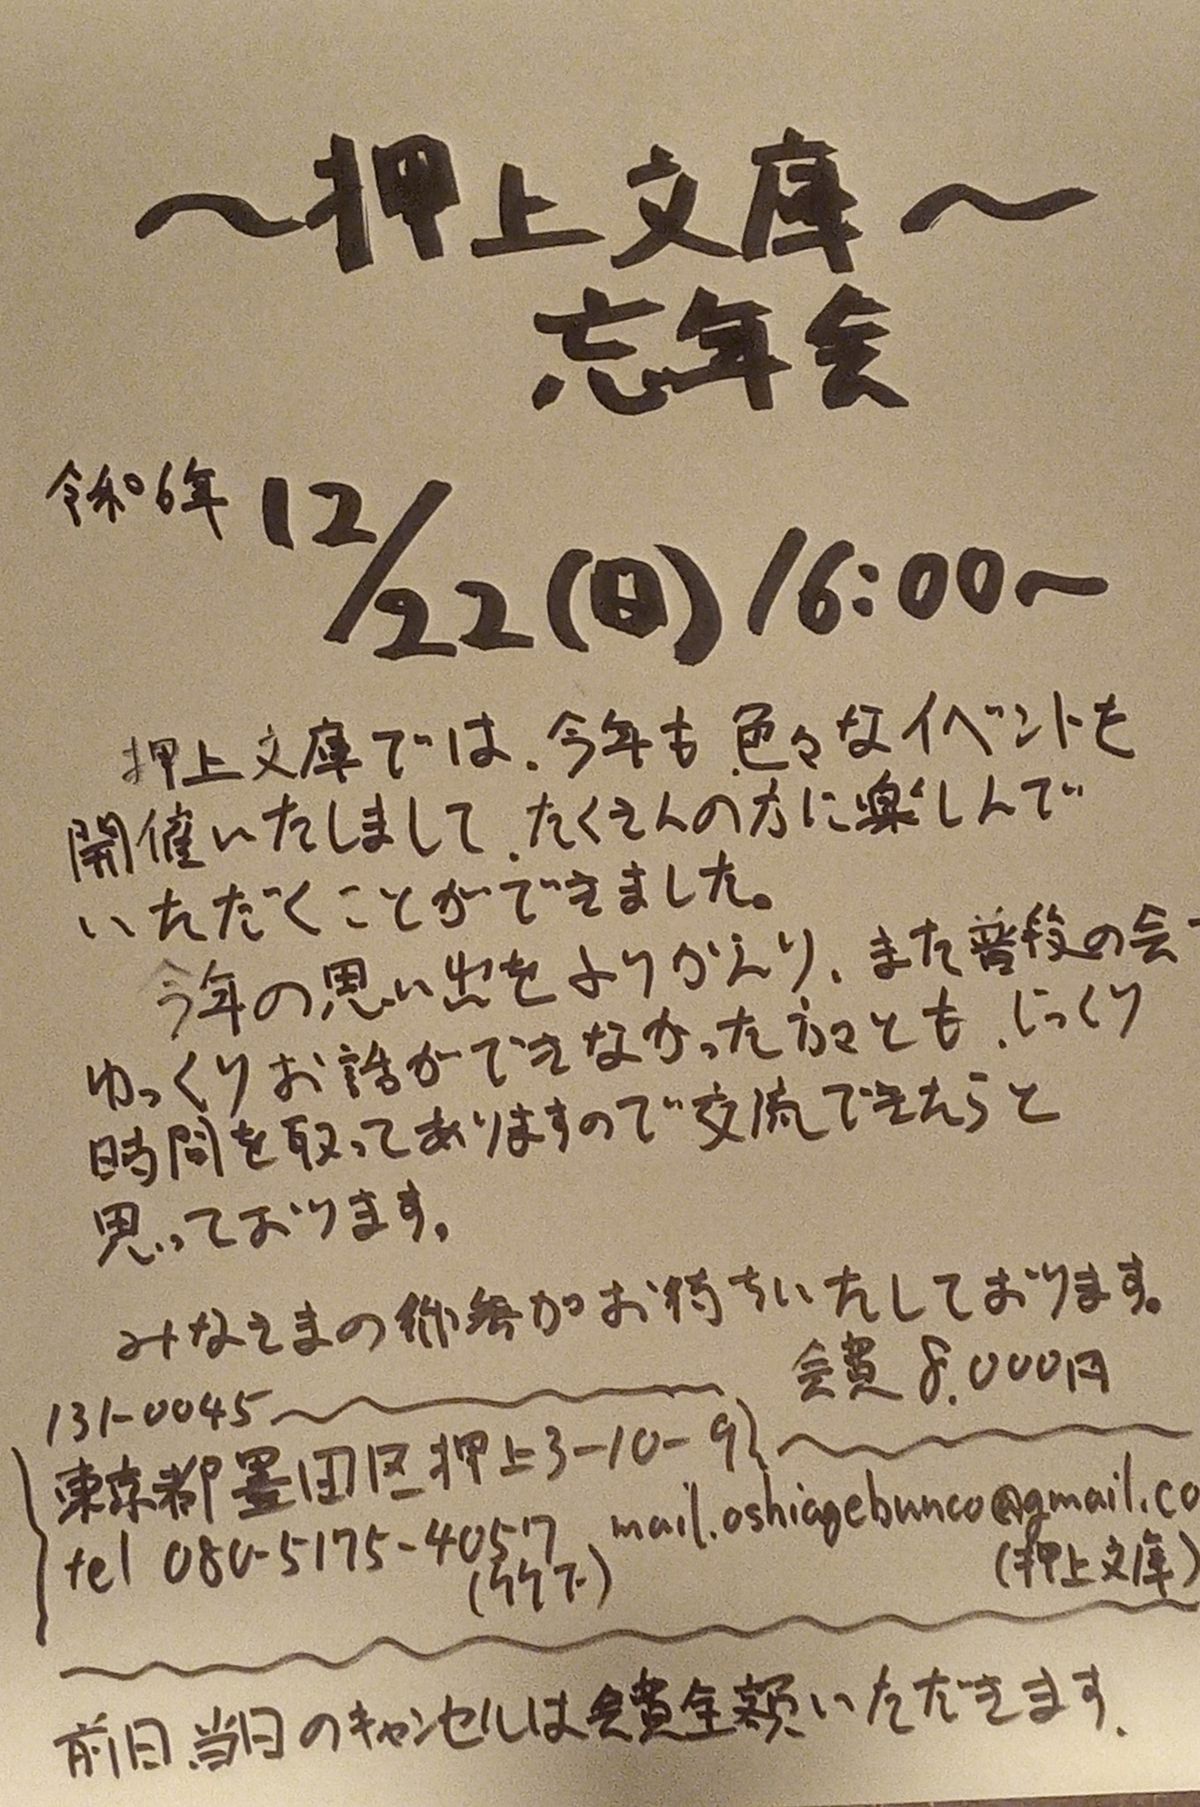 ～押上文庫～
忘年会
令和6年 12/22(日) 16:00～
押上文庫では、今年も色々なイベントを
開催いたしまして、たくさんの方に楽しんで
いただくことができました。
今年の思い出をふりかえり、また普段の会で
ゆっくりお話ができなかった方々とも、じっくり
時間を取ってありますので交流できたらと
思っております。
みなさまの御参加お待ちいたしております。
会費 8,000円
131-0045
東京都墨田区押上3-10-9
tel 080-5175-4057 mail.oshiagebunco@gmail.co
(タケナ) (押上文庫)
前日、当日のキャンセルは会費全額いただきます、